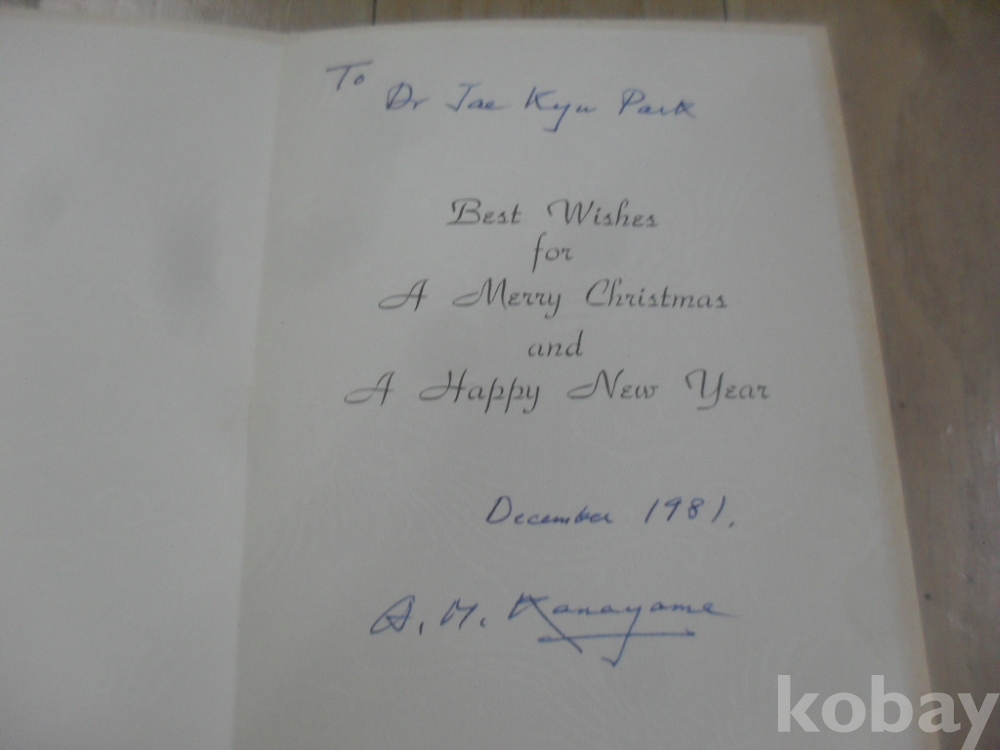 To
Dr Jae Kyu Park
Best Wishes
for
A Merry Christmas
and
A Happy New Year
December 1981.
A. M. Kanayama
kobay